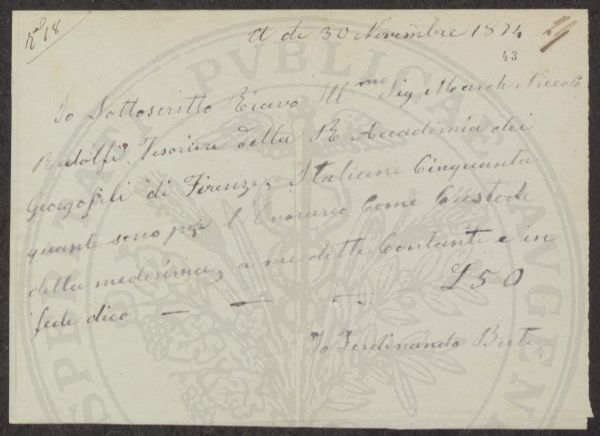 No 18
A dì 30 Novembre 1874
29
43
Io Sottoscritto Ricevo Ill.mo Sig. March Niccolò
Ridolfi Tesoriere della R Accademia dei
Georgofili di Firenze, Italiane Cinquanta
quante sono per l'Onorario Come Custode
della medesima, a me dette Contanti e in
fede dico — — — — £50
Io Ferdinando